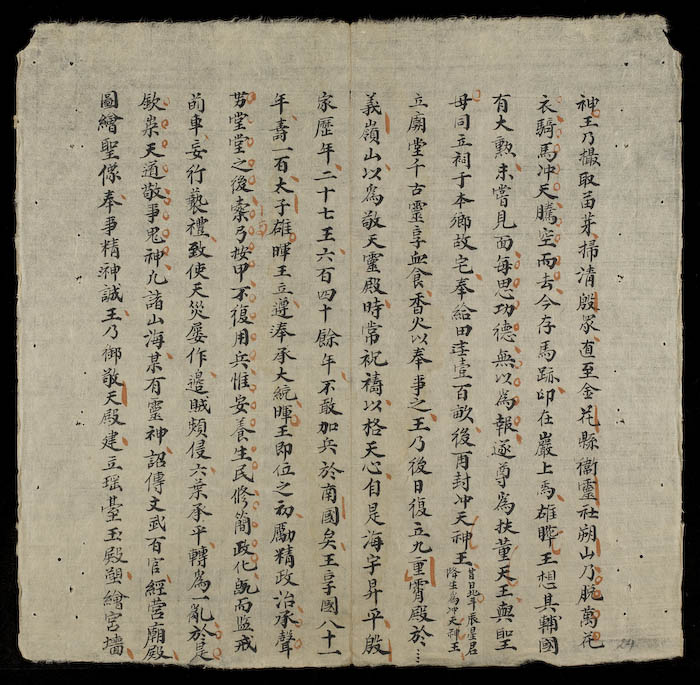 神王乃撮取苗芽掃清殷眾直至金花縣衞靈社朔山乃脫萬花
衣騎馬冲天騰空而去今存馬跡印在巖上焉雄曄王想其輔國
有大勲未嘗見面每思功德無以為報遂尊為扶董天王與聖
母同立祠于本鄉故宅奉給田圭壹百畝後再封冲天神王昔日北平辰星君降生為冲天神王
立廟堂千古靈享血食香火以奉事之王乃後日復立九重霄殿於…
義嶺山以為敬天靈殿時常祝禱以格天心自是海宇昇平殷
家歷年二十七王六百四十餘年不敢加兵於南國矣王享國八十一
年壽一百太子雄暉王立遵奉承大統暉王即位之初勵精政治承聲
勞堂堂之後櫜弓按甲不復用兵惟安養生民修簡政化旣而監戒
前車妄行褻禮致使天災屢作邊賊頻侵六葉承平轉為一亂於是
欽崇天道敬事鬼神凡諸山海某有靈神詔傳文武百官經營廟殿
圖繪聖像奉事精神誠王乃御敬天殿建立瑶臺玉殿塑繪宮墻
24